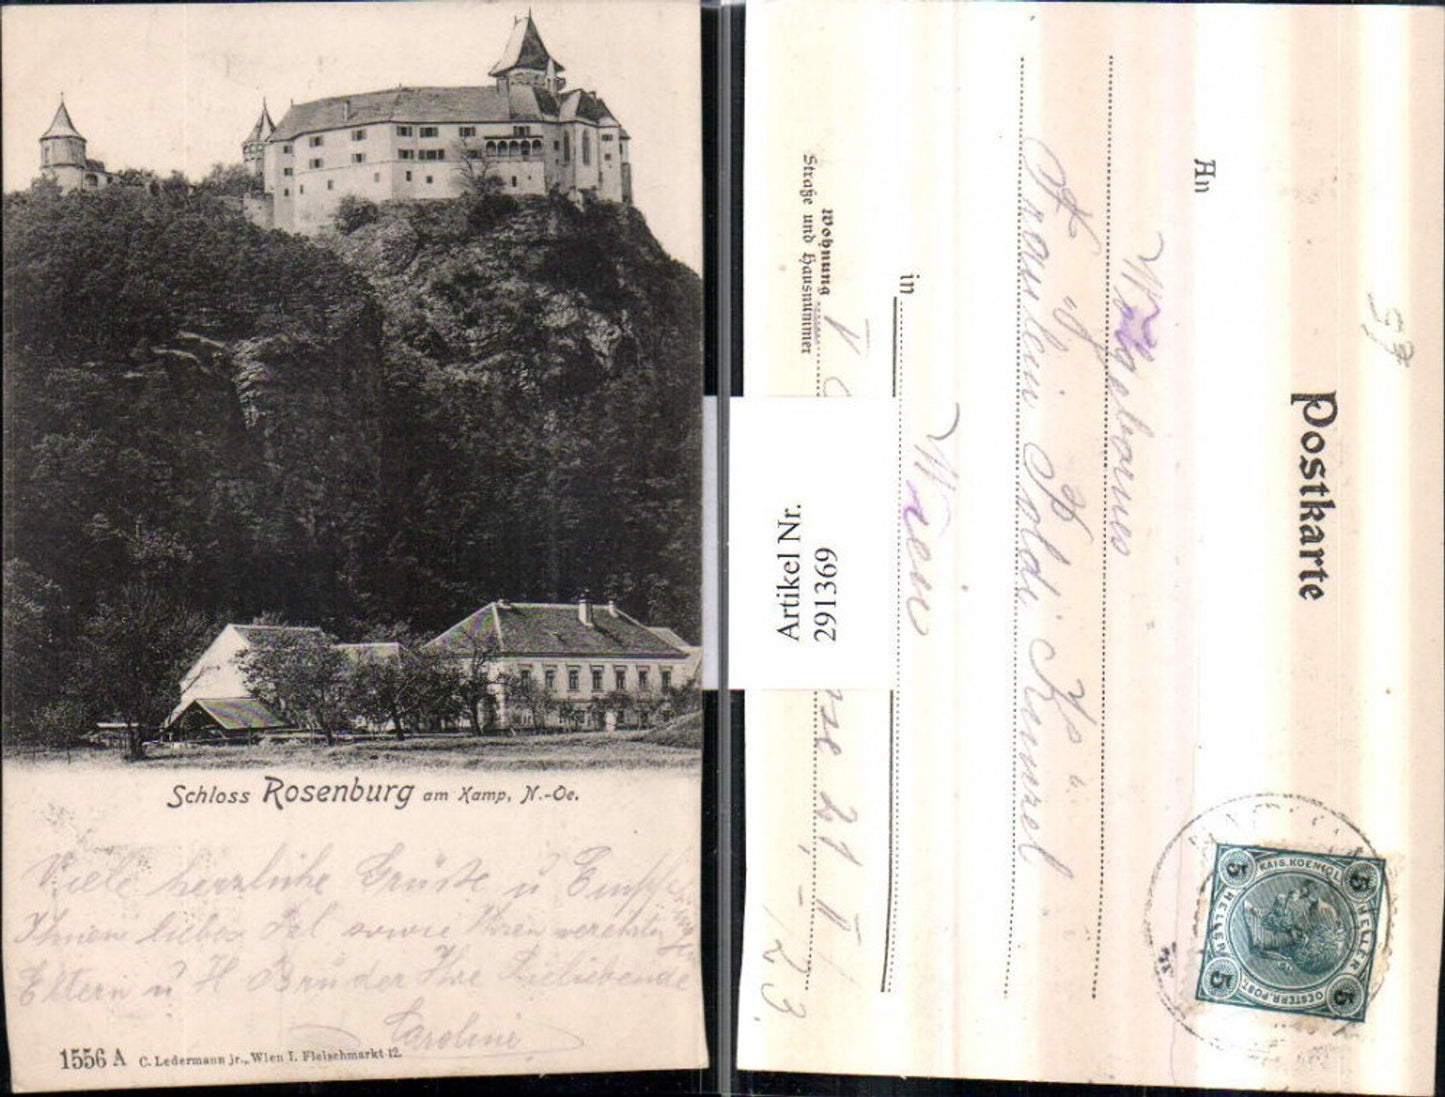 Schloss Rosenburg am Kamp, N.-Oe.
Viele herzliche Grüße u
Ihnen liebes sowie Ihren
Eltern u H Brüder Ihre Sieliebende
Caroline
1556 A C. Ledermann jr., Wien I. Fleischmarkt 12.
Postkarte
An
Wohlgeboren
Fräulein Poldi
in Wien
Wohnung
Straße und Hausnummer
21
23.
53
Artikel Nr.
291369
KAIS. KOENIGL.
OESTERR. POST.
HELLER
HELLER
5
5
5
5